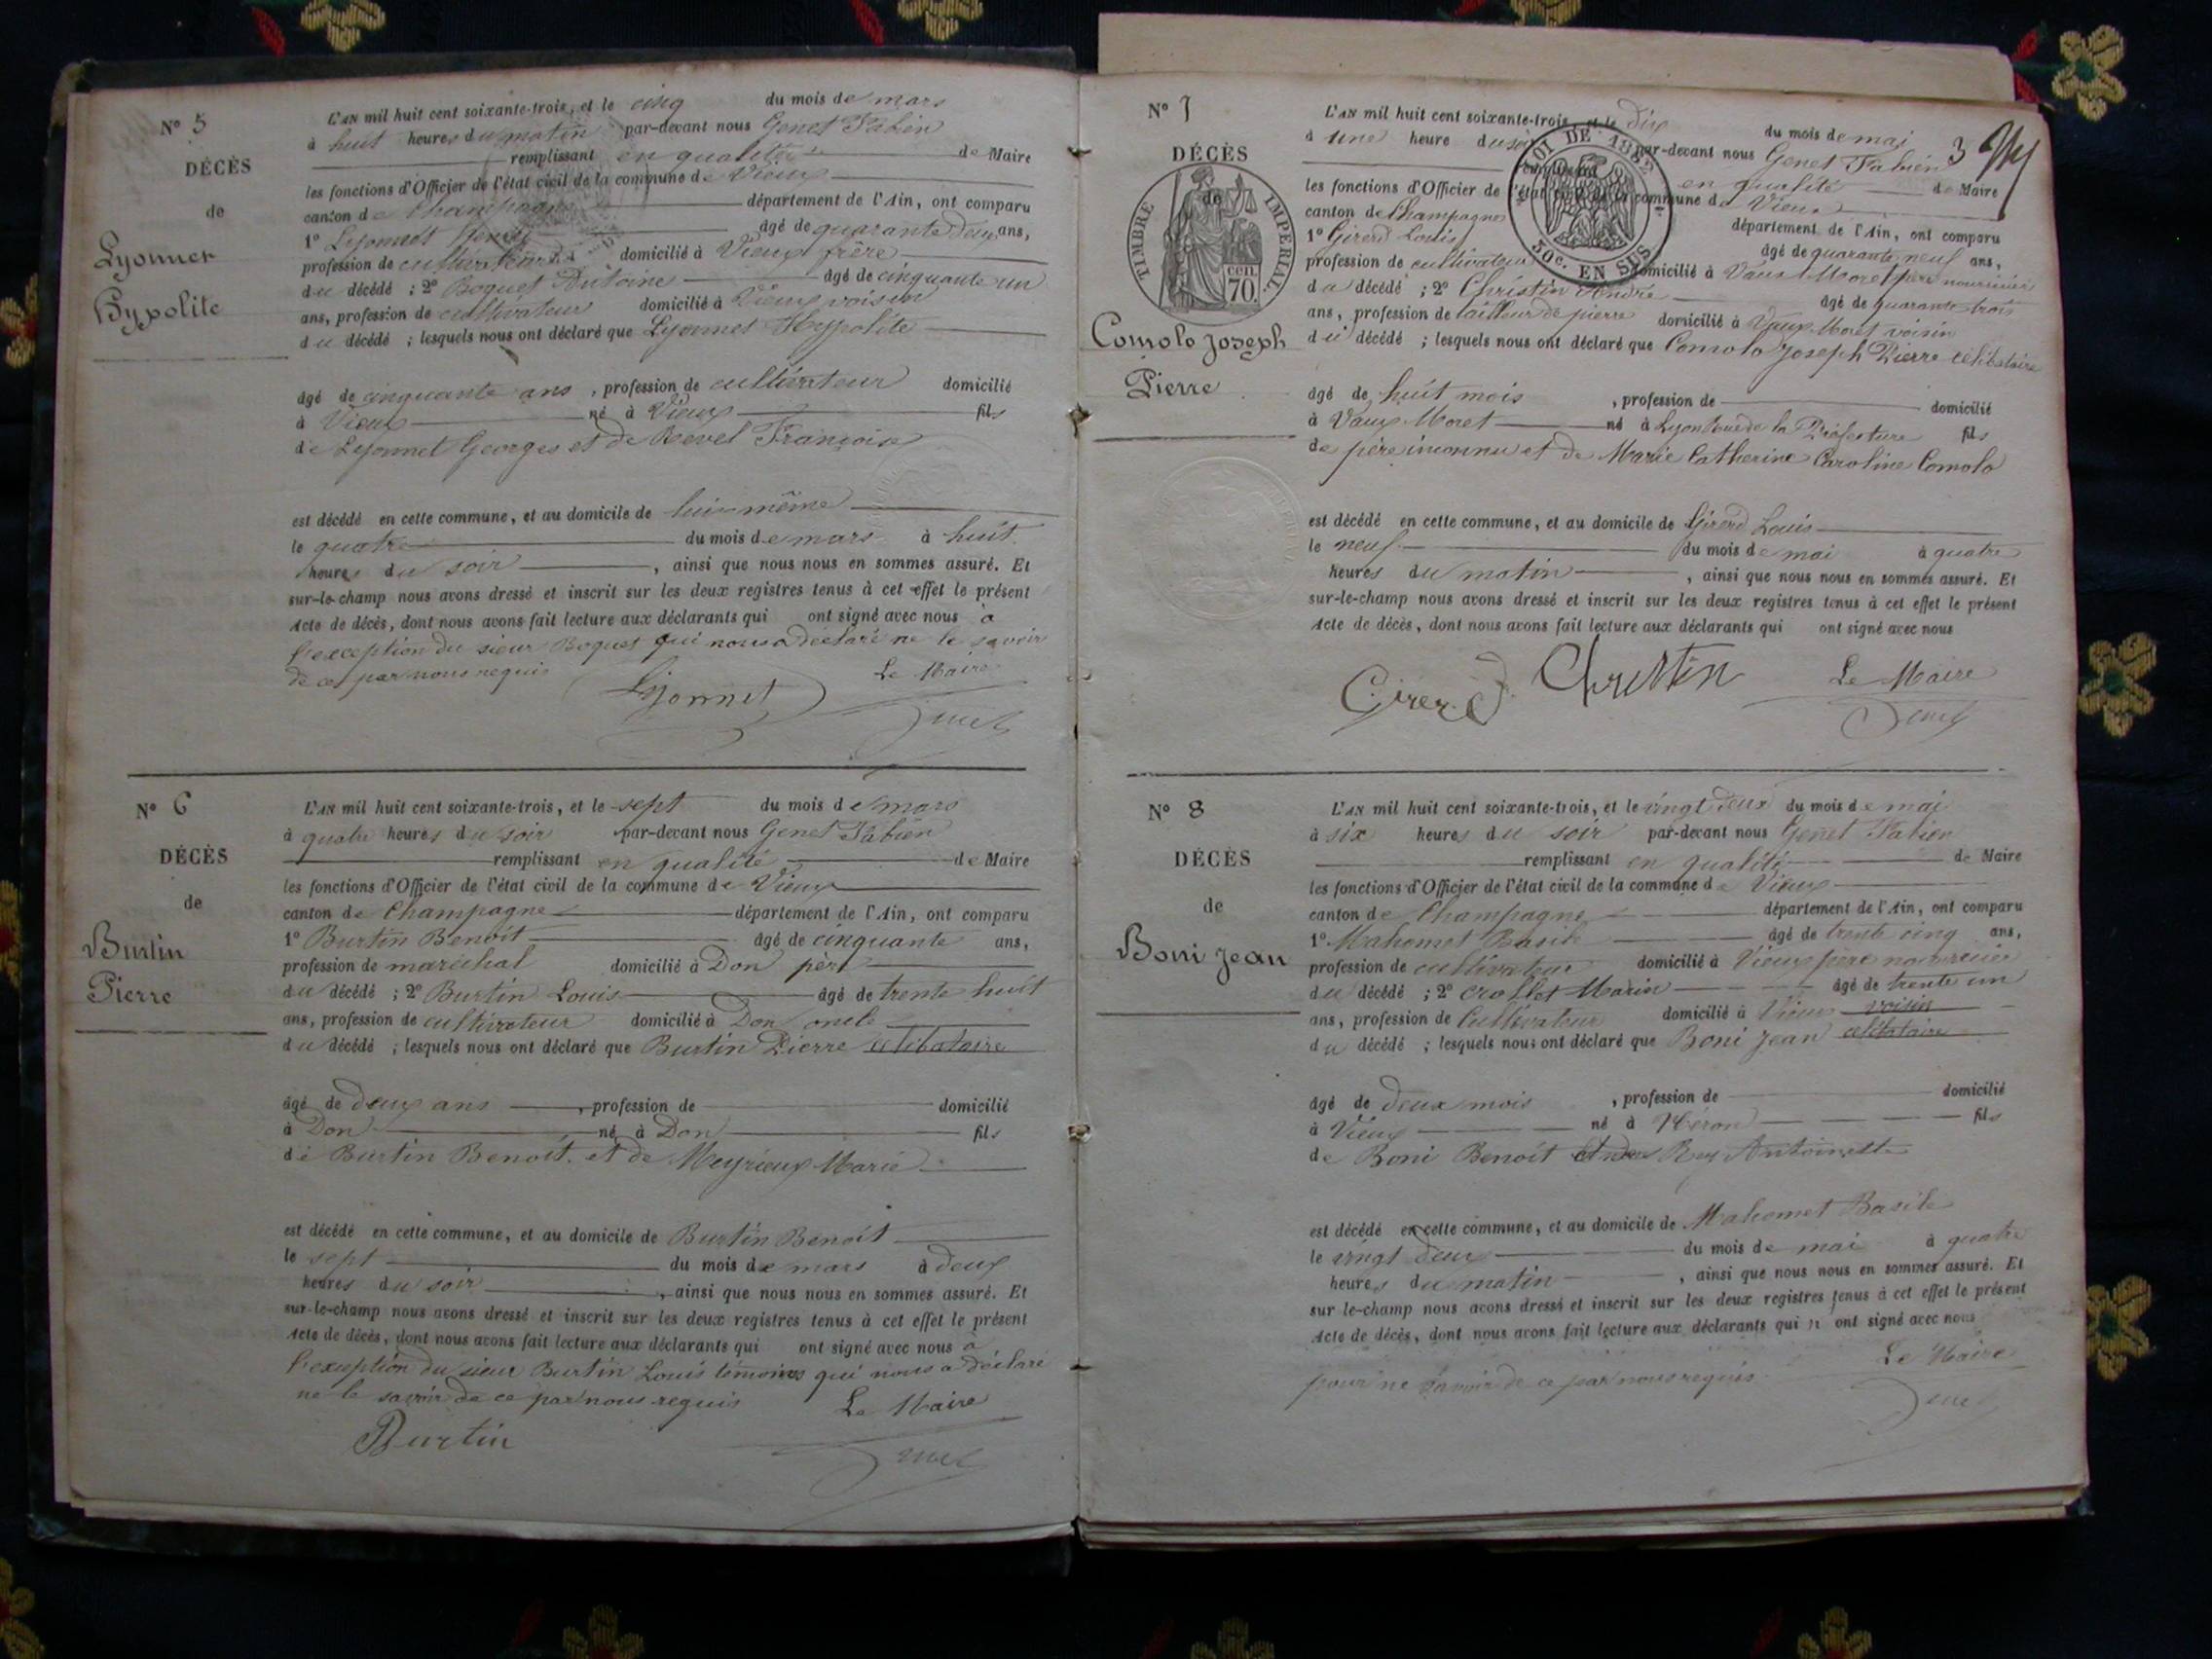 N° 5
DÉCÈS
de
Lyonnet
Hypolite
L'AN mil huit cent soixante-trois, et le cinq du mois de mars
à huit heures du matin par-devant nous Genet Fabien
remplissant en qualité de Maire
les fonctions d'Officier de l'état civil de la commune de Vieux
canton de Champagne département de l'Ain, ont comparu
1° Lyonnet âgé de quarante deux ans,
profession de cultivateur domicilié à Vieux frère
du décédé ; 2° Boquet Antoine âgé de cinquante un
ans, profession de cultivateur domicilié à Vieux voisin
du décédé ; lesquels nous ont déclaré que Lyonnet Hypolite
âgé de cinquante ans , profession de cultivateur domicilié
à Vieux né à Vieux fils
de Lyonnet Georges et de Revel Françoise
est décédé en cette commune, et au domicile de lui même
le quatre du mois de mars à huit
heures du soir , ainsi que nous nous en sommes assuré. Et
sur-le-champ nous avons dressé et inscrit sur les deux registres tenus à cet effet le présent
Acte de décès, dont nous avons fait lecture aux déclarants qui ont signé avec nous à
l'exception du sieur Boquet qui nous a déclaré ne le savoir
de ce par nous requis Le Maire
Lyonnet Genet
N° 6
DÉCÈS
de
Burtin
Pierre
L'AN mil huit cent soixante-trois, et le sept du mois de mars
à quatre heures du soir par-devant nous Genet Fabien
remplissant en qualité de Maire
les fonctions d'Officier de l'état civil de la commune de Vieux
canton de Champagne département de l'Ain, ont comparu
1° Burtin Benoit âgé de cinquante ans,
profession de maréchal domicilié à Don père
du décédé ; 2° Burtin Louis âgé de trente huit
ans, profession de cultivateur domicilié à Don oncle
du décédé ; lesquels nous ont déclaré que Burtin Pierre célibataire
âgé de deux ans , profession de domicilié
à Don né à Don fils
de Burtin Benoit et de Meyrieux Marie
est décédé en cette commune, et au domicile de Burtin Benoit
le sept du mois de mars à deux
heures du soir , ainsi que nous nous en sommes assuré. Et
sur-le-champ nous avons dressé et inscrit sur les deux registres tenus à cet effet le présent
Acte de décès, dont nous avons fait lecture aux déclarants qui ont signé avec nous à
l'exception du sieur Burtin Louis témoins qui nous a déclaré
ne le savoir de ce par nous requis Le Maire
Burtin Genet
3
N° 7
DÉCÈS
de
TIMBRE IMPERIAL
cen. 70.
Comolo Joseph
Pierre
LOI DE 1862
30c. EN SUS
L'AN mil huit cent soixante-trois, et le dix du mois de mai
à une heure du soir par-devant nous Genet Fabien
remplissant en qualité de Maire
les fonctions d'Officier de l'état civil de la commune de Vieux
canton de Champagne département de l'Ain, ont comparu
1° Girerd Louis âgé de quarante neuf ans,
profession de cultivateur domicilié à Vaux Moret père nourricier
du décédé ; 2° Christin André âgé de quarante trois
ans, profession de tailleur de pierre domicilié à Vaux Moret voisin
du décédé ; lesquels nous ont déclaré que Comolo Joseph Pierre célibataire
âgé de huit mois , profession de domicilié
à Vaux Moret né à Lyon Rue de la Préfecture fils
de père inconnu et de Marie Catherine Caroline Comolo
est décédé en cette commune, et au domicile de Girerd Louis
le neuf du mois de mai à quatre
heures du matin , ainsi que nous nous en sommes assuré. Et
sur-le-champ nous avons dressé et inscrit sur les deux registres tenus à cet effet le présent
Acte de décès, dont nous avons fait lecture aux déclarants qui ont signé avec nous
Girerd Christin Le Maire
Genet
N° 8
DÉCÈS
de
Boni Jean
L'AN mil huit cent soixante-trois, et le vingt deux du mois de mai
à six heures du soir par-devant nous Genet Fabien
remplissant en qualité de Maire
les fonctions d'Officier de l'état civil de la commune de Vieux
canton de Champagne département de l'Ain, ont comparu
1° Mahomet Basile âgé de trente cinq ans,
profession de cultivateur domicilié à Vieux père nourricier
du décédé ; 2° Crollet Marin âgé de trente un
ans, profession de Cultivateur domicilié à Vieux voisin
du décédé ; lesquels nous ont déclaré que Boni Jean célibataire
âgé de deux mois , profession de domicilié
à Vieux né à fils
de Boni Benoit et de Rey Antoinette
est décédé en cette commune, et au domicile de Mahomet Basile
le vingt deux du mois de mai à quatre
heures du matin , ainsi que nous nous en sommes assuré. Et
sur-le-champ nous avons dressé et inscrit sur les deux registres tenus à cet effet le présent
Acte de décès, dont nous avons fait lecture aux déclarants qui n' ont signé avec nous
pour ne savoir de ce par nous requis. Le Maire
Genet